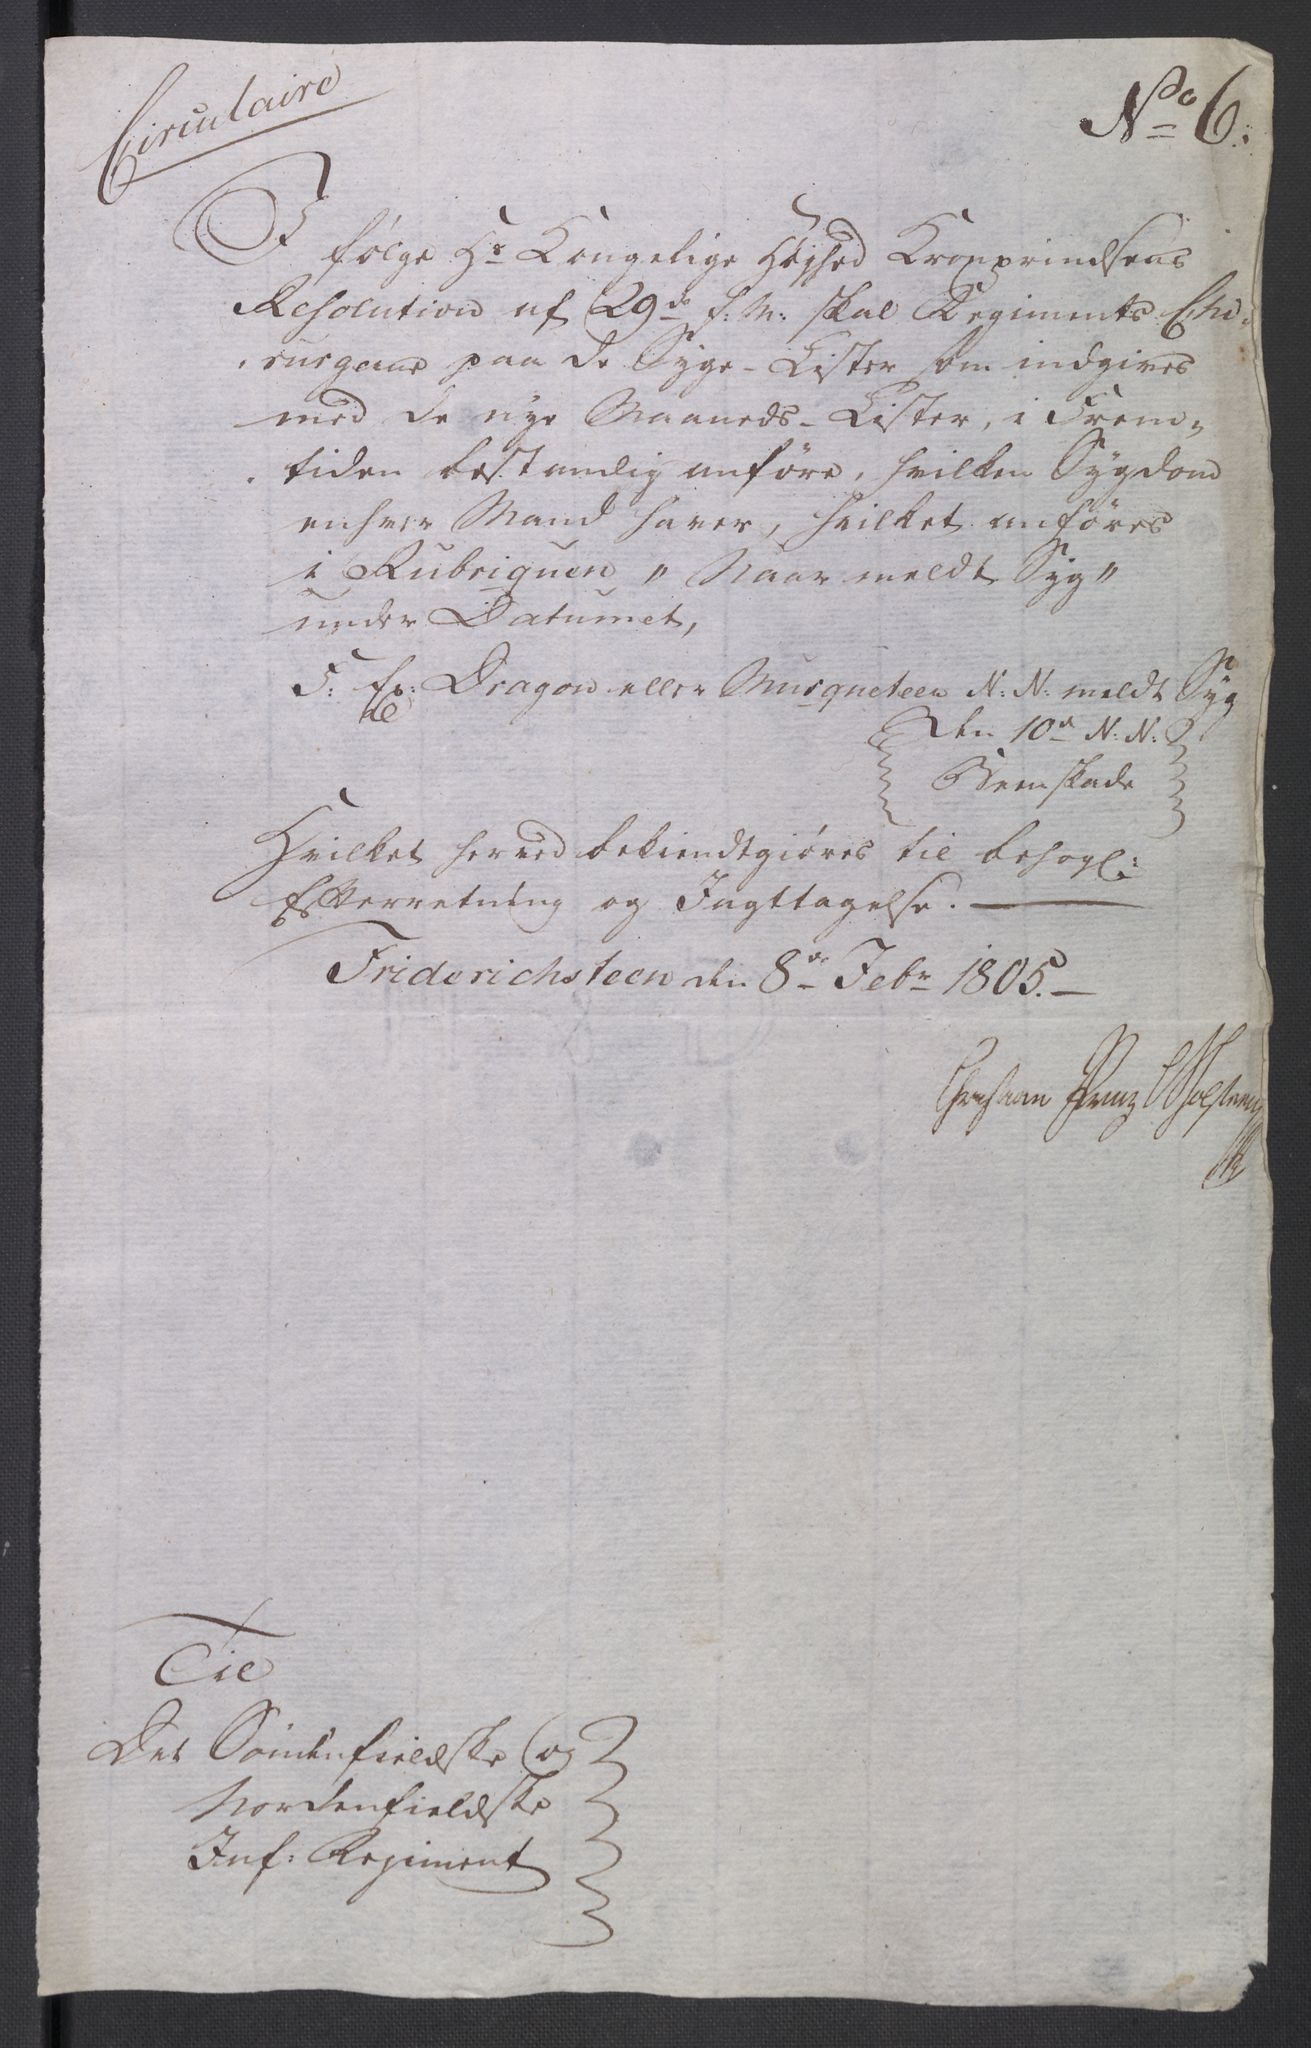 Circulaire
No 6.
I følge Hs Kongelige Højhed Kronprindsens
Resolution af 29de f: M: skal Regiments Chi-
rurgerne paa de Syge-Lister som indgives
med de nye Maaneds-Lister, i Frem-
tiden bestandig anføre, hvilken Sygdom
enhver Mand haver, hvilket anføres
i Rubriquen "Naar meldt Syg"
under Datumet,
F: Ex: Dragon eller Musqueteer N: N: meldt Syg
den 10de N: N:
Beenskade
Hvilket herved bekiendtgiøres til behagl:
Efterretning og Iagttagelse.
Friderichsteen den 8de Febr 1805.
Til
Det Søndenfieldske og
Nordenfieldske
Inf: Regiment